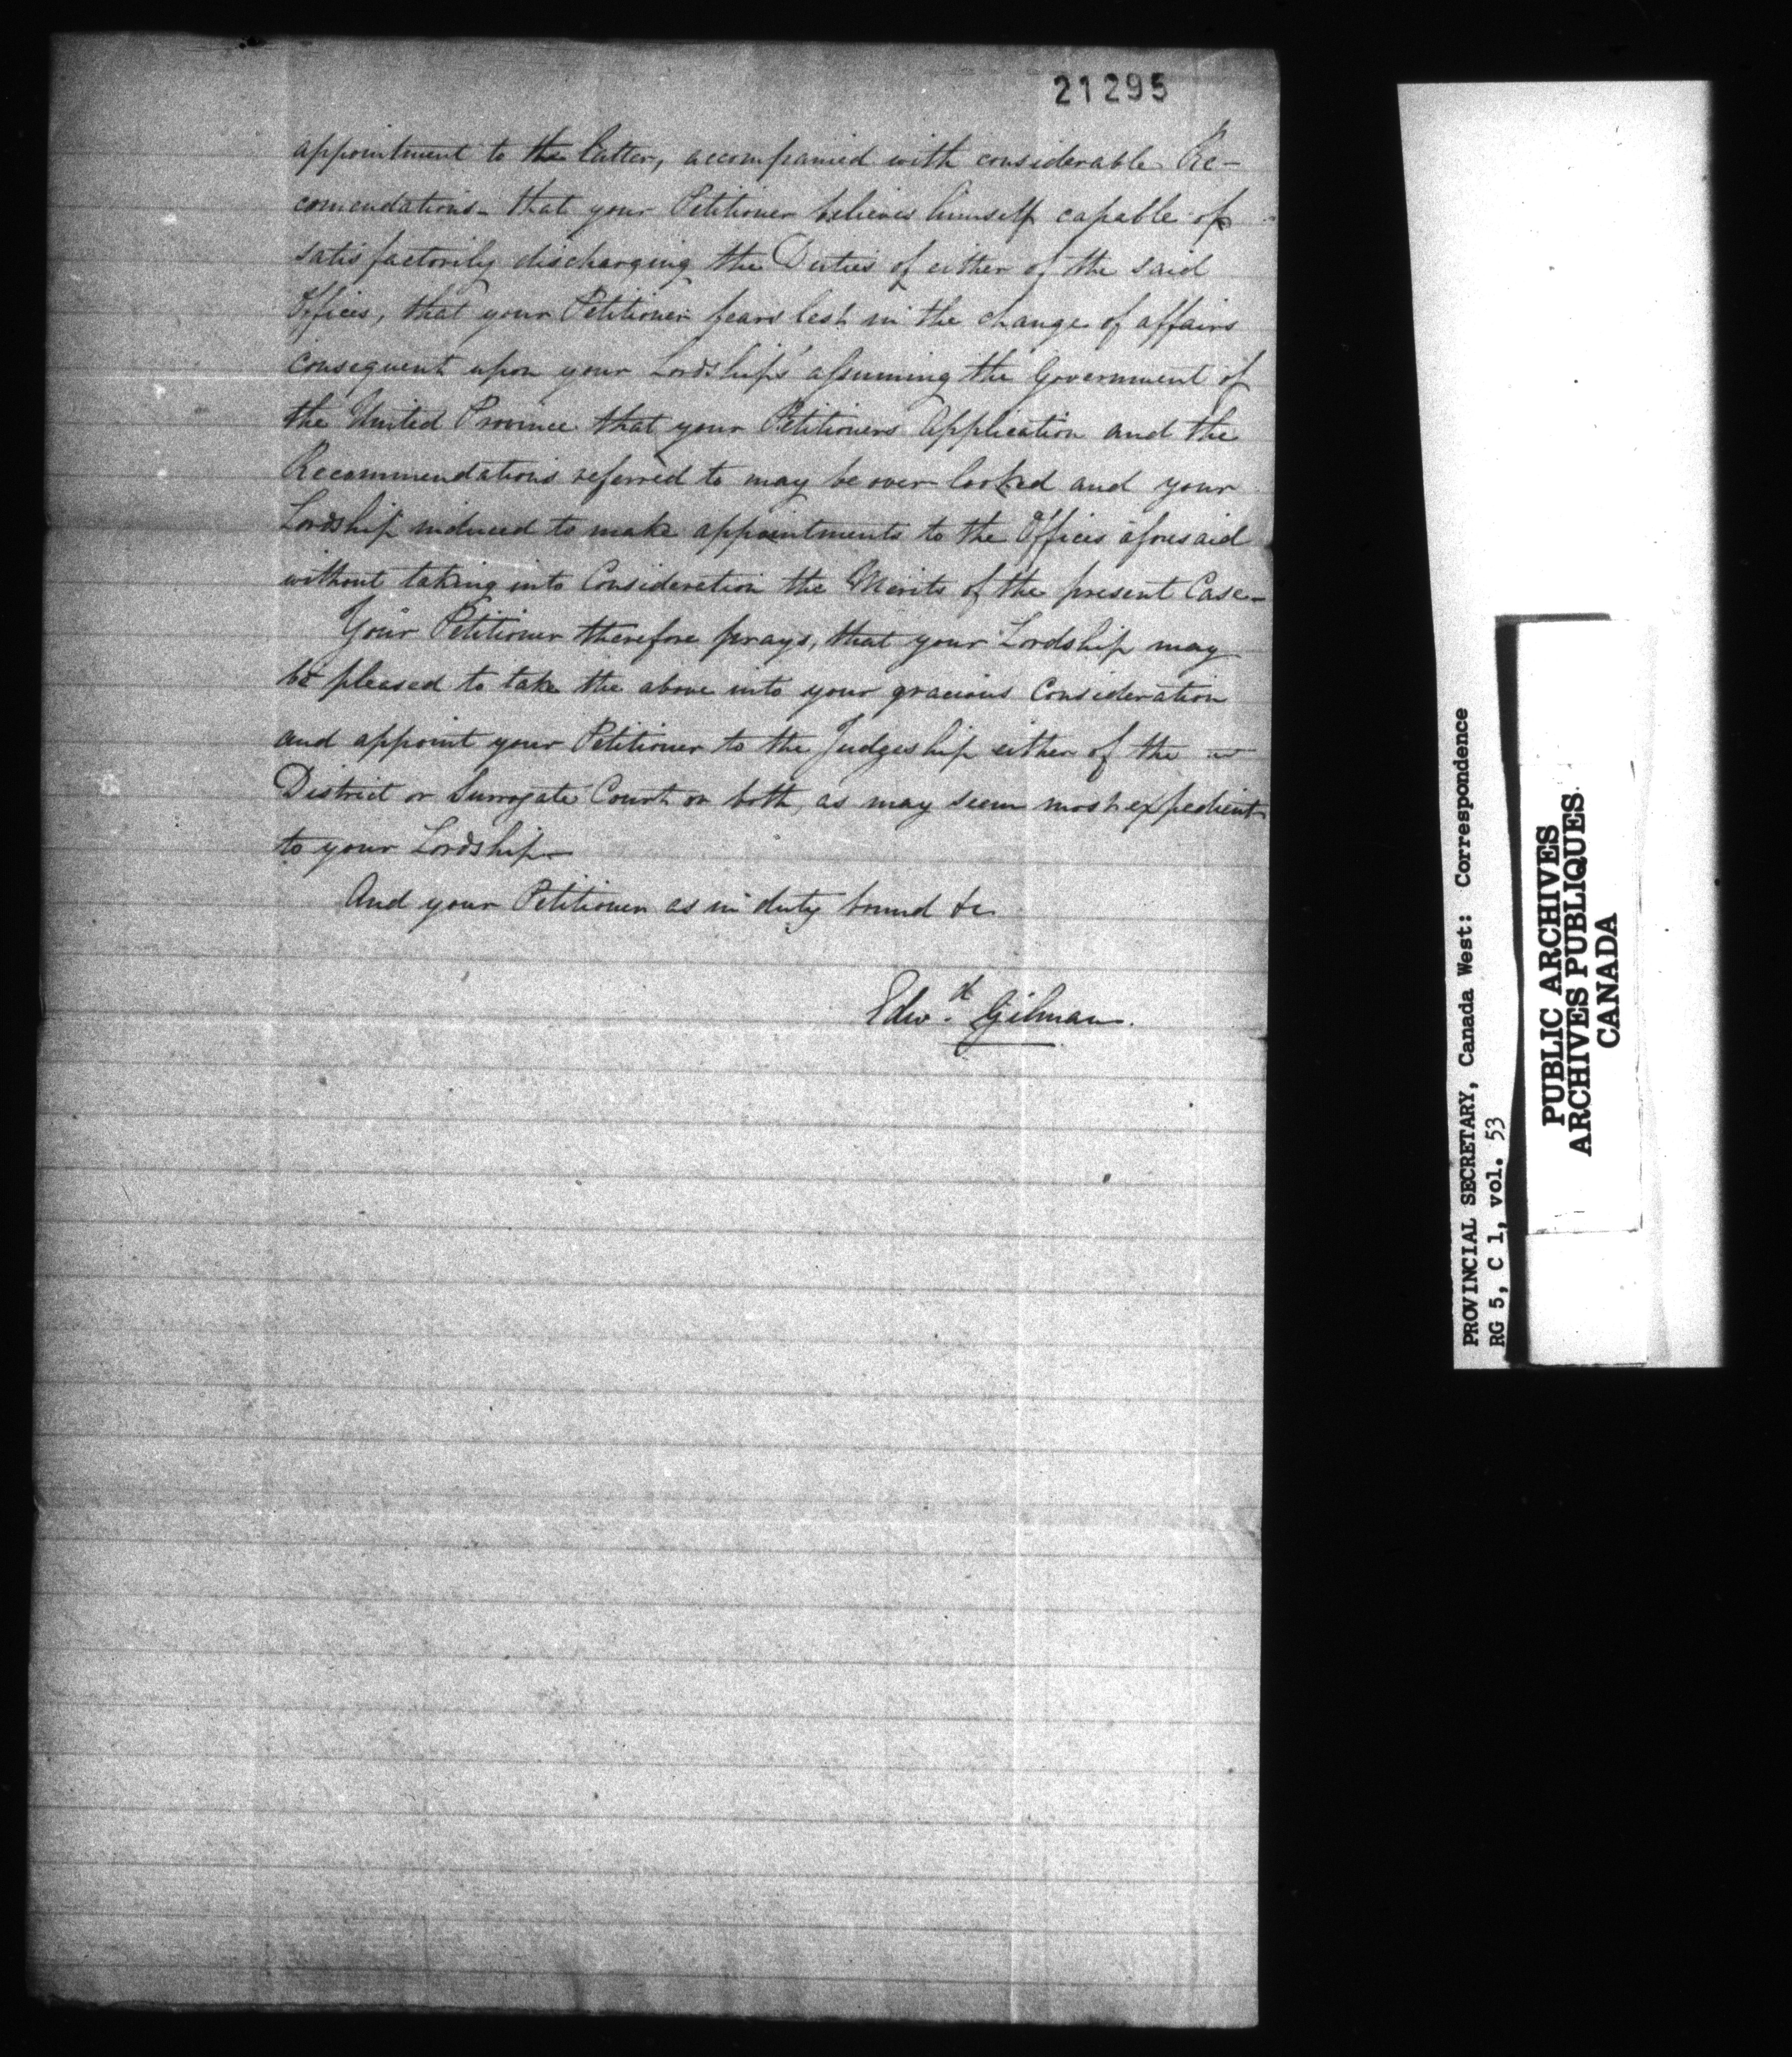 21295
appointment to the latter, accompanied with considerable Re-
comendations - that your Petitioner believes himself capable of
satisfactorily discharging the Duties of either of the said
Offices, that your Petitioner fears lest in the change of affairs
consequent upon your Lordship's assuming the Government of
the United Province that your Petitioners Application and the
Recommendations referred to may be over-looked and your
Lordship induced to make appointments to the Offices aforesaid
without taking into Consideration the Merits of the present Case -
Your Petitioner therefore prays, that your Lordship may
be pleased to take the above into your gracious Consideration
and appoint your Petitioner to the Judgeship either of the
District or Surrogate Court or both, as may seem most expedient
to your Lordship -
And your Petitioner as in duty bound &c
Edwd. Gilman.
PROVINCIAL SECRETARY, Canada West: Correspondence
RG 5, C 1, vol. 53
PUBLIC ARCHIVES
ARCHIVES PUBLIQUES
CANADA